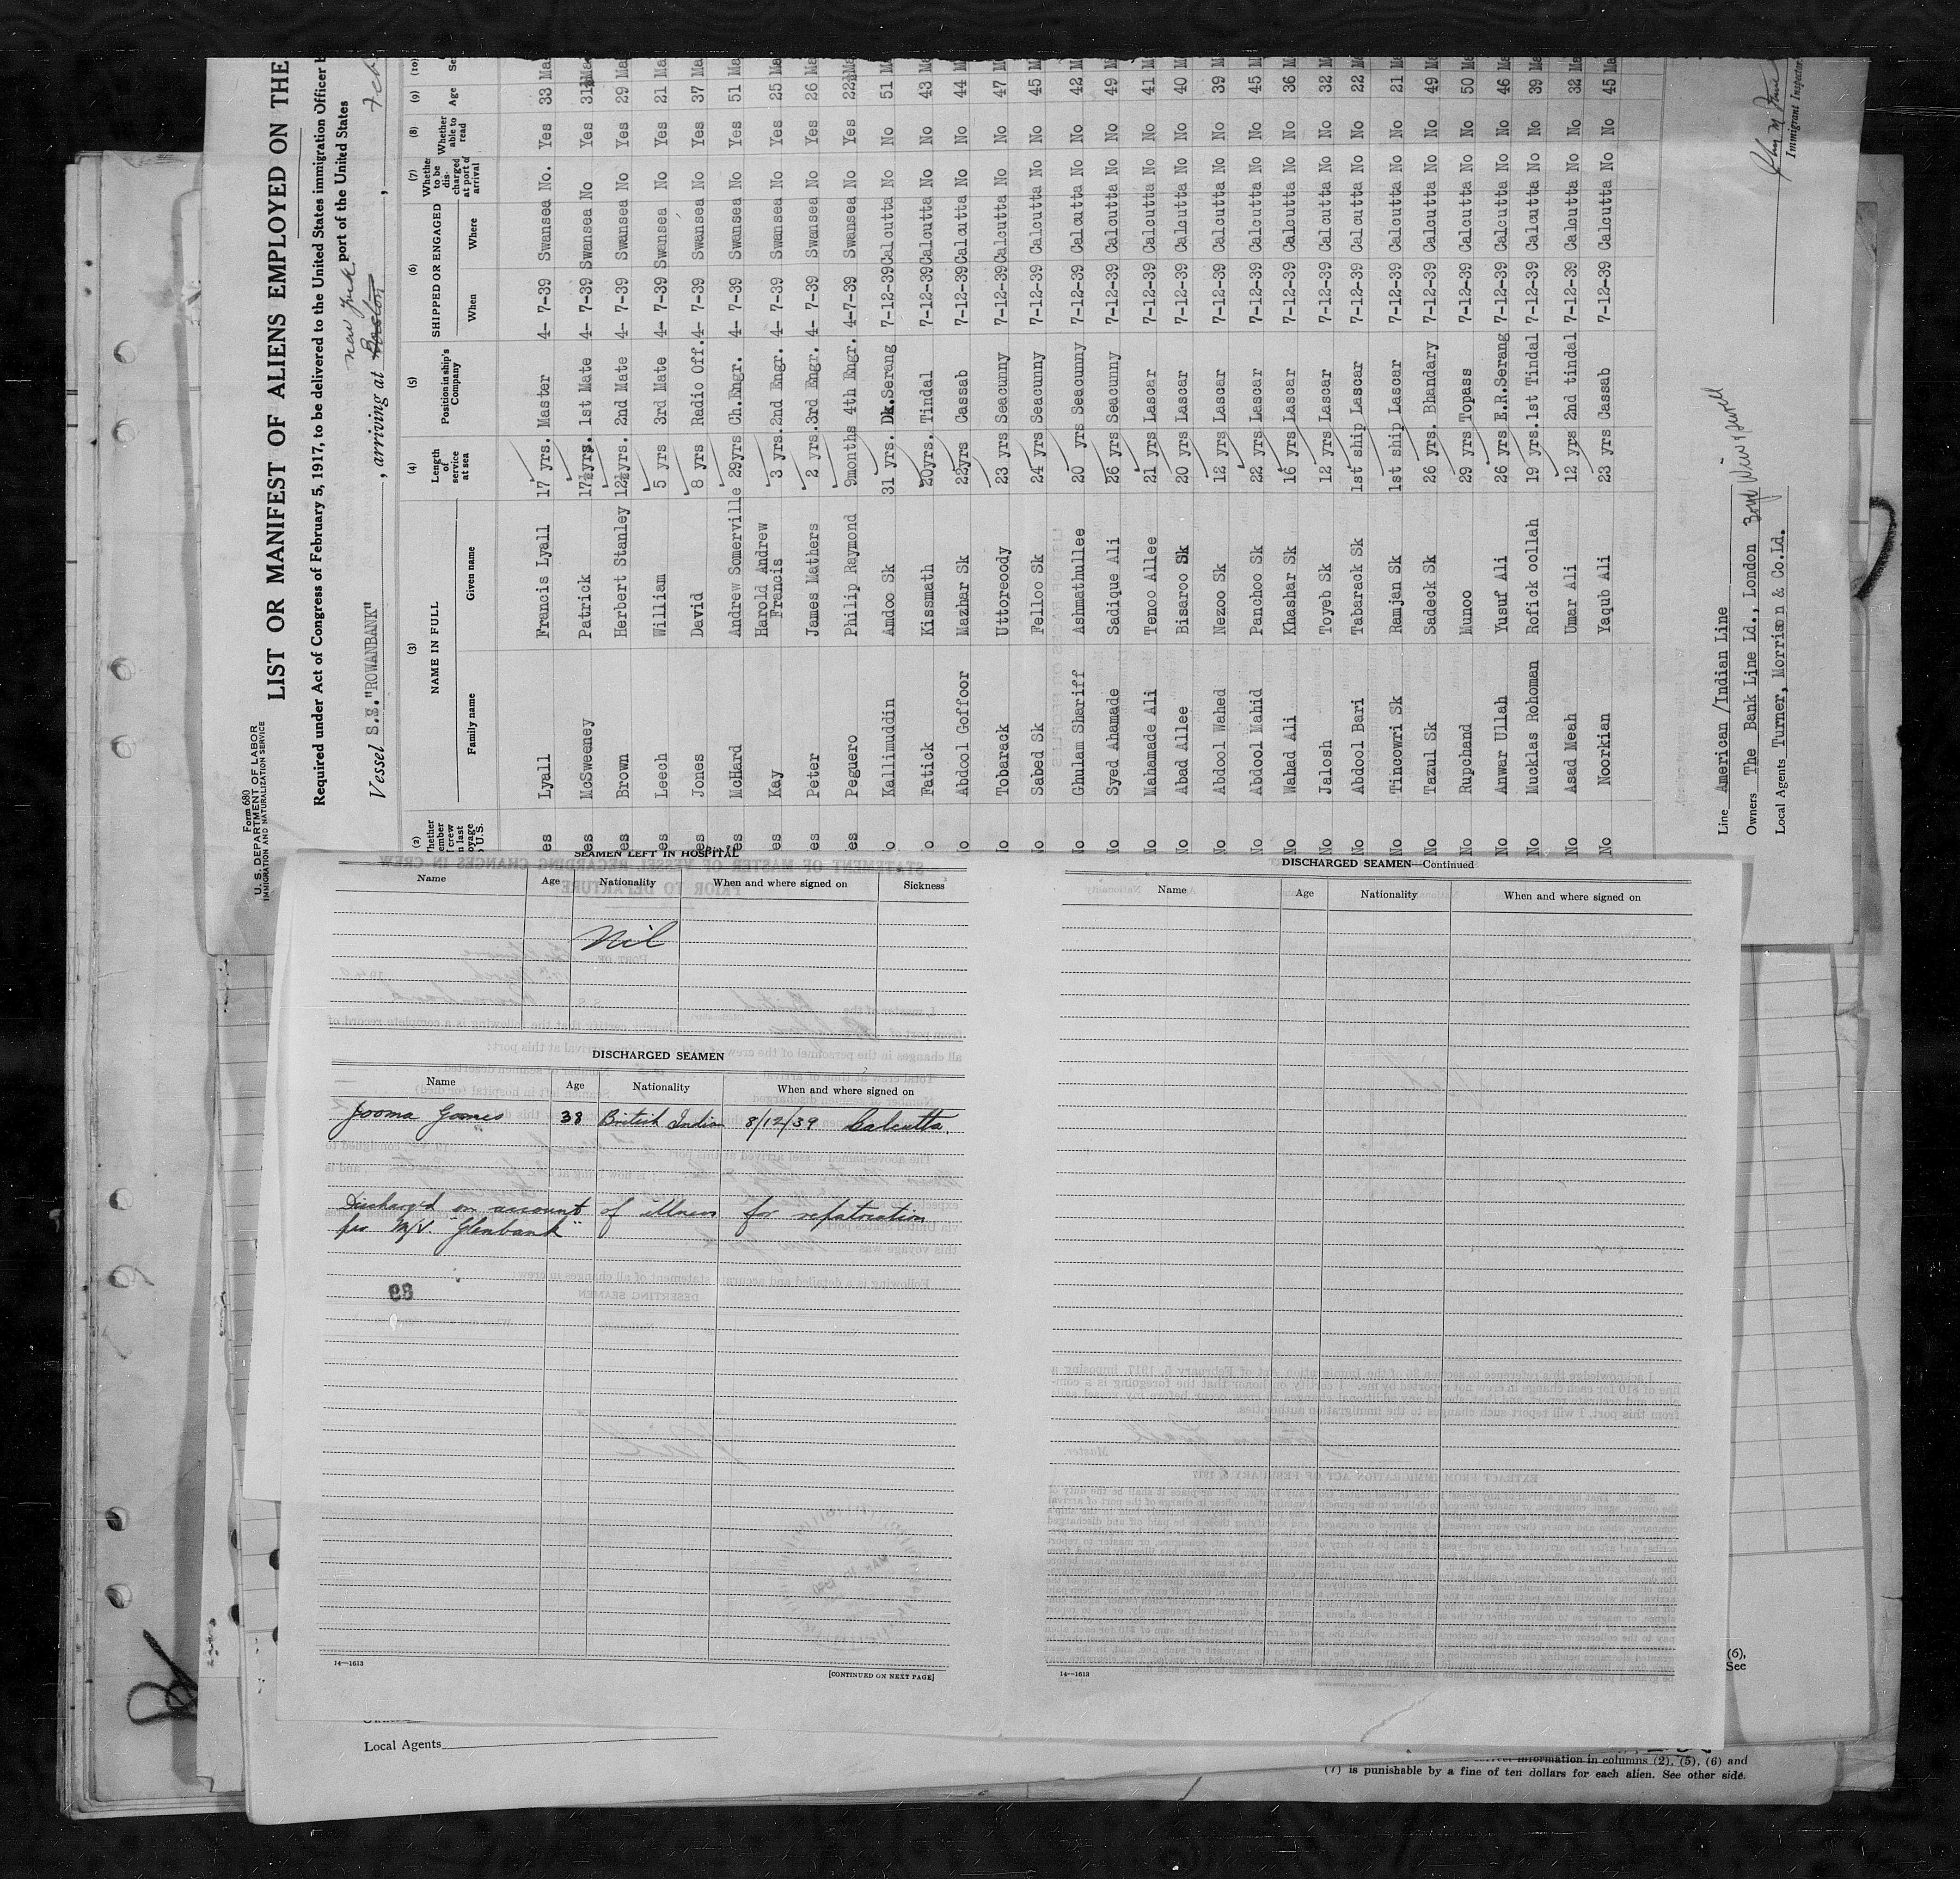 Form 680
U. S. DEPARTMENT OF LABOR
IMMIGRATION AND NATURALIZATION SERVICE
LIST OR MANIFEST OF ALIENS EMPLOYED ON THE
Required under Act of Congress of February 5, 1917, to be delivered to the United States immigration Officer
port of the United States
Vessel S.S."ROWANBANK", arriving at Boston New York,
(3) (4) (5) (6) (7) (8) (9) (10)
NAME IN FULL Length of service at sea Position in ship's Company SHIPPED OR ENGAGED Whether to be discharged at port of arrival Whether able to read Age
Family name Given name When Where
es Lyall Francis Lyall 17 yrs. Master 4- 7-39 Swansea No. Yes 33 Ma
es McSweney Patrick 17½yrs. 1st Mate 4- 7-39 Swansea No Yes 31½ Ma
es Brown Herbert Stanley 12½yrs. 2nd Mate 4- 7-39 Swansea No Yes 29 Ma
es Leech William 5 yrs 3rd Mate 4- 7-39 Swansea No Yes 21 Ma
es Jones David 8 yrs Radio Off. 4- 7-39 Swansea No Yes 37 Ma
es McHard Andrew Somerville 29yrs Ch.Engr. 4- 7-39 Swansea No Yes 51 Ma
es Kay Harold Andrew Francis 3 yrs. 2nd Engr. 4- 7-39 Swansea No Yes 25 Ma
es Peter James Mathers 2 yrs. 3rd Engr. 4- 7-39 Swansea No Yes 26 Ma
es Peguero Philip Raymond 9months 4th Engr. 4-7-39 Swansea No Yes 22½ Ma
o Kallimuddin Amdoo Sk 31 yrs. Dk.Serang 7-12-39 Calcutta No No 51 M
o Fatick Kissmath 20yrs. Tindal 7-12-39 Calcutta No No 43 M
o Abdool Goffoor Mazhar Sk 22yrs Cassab 7-12-39 Calcutta No No 44 M
No Tobarack Uttoreoody 23 yrs Seacunny 7-12-39 Calcutta No No 47 M
No Sabed Sk Felloo Sk 24 yrs Seacunny 7-12-39 Calcutta No No 45 M
No Ghulam Shariff Ashmathullee 20 yrs Seacunny 7-12-39 Calcutta No No 42 M
No Syed Ahamade Sadique Ali 26 yrs Seacunny 7-12-39 Calcutta No No 49 M
No Mahamade Ali Tenoo Allee 21 yrs Lascar 7-12-39 Calcutta No No 41 M
No Abad Allee Bisaroo Sk 20 yrs Lascar 7-12-39 Calcutta No No 40 M
No Abdool Wahed Nezoo Sk 12 yrs Lascar 7-12-39 Calcutta No No 39 M
No Abdool Mahid Panchoo Sk 22 yrs Lascar 7-12-39 Calcutta No No 45 M
No Wahad Ali Khashar Sk 16 yrs Lascar 7-12-39 Calcutta No No 36 M
No Jalosh Toyeb Sk 12 yrs Lascar 7-12-39 Calcutta No No 32 M
No Abdool Bari Tabarack Sk 1st ship Lascar 7-12-39 Calcutta No No 22 M
No Tincowri Sk Ramjan Sk 1st ship Lascar 7-12-39 Calcutta No No 21 M
No Tazul Sk Sadeck Sk 26 yrs. Bhandary 7-12-39 Calcutta No No 49 Ma
No Rupchand Munoo 29 yrs Topass 7-12-39 Calcutta No No 50 Ma
No Anwar Ullah Yusuf Ali 26 yrs E.R.Serang 7-12-39 Calcutta No No 46 Ma
No Mucklas Rohoman Rofick oollah 19 yrs. 1st Tindal 7-12-39 Calcutta No No 39 Ma
No Asad Meah Umar Ali 12 yrs 2nd tindal 7-12-39 Calcutta No No 32 Ma
No Noorkian Yaqub Ali 23 yrs Cassab 7-12-39 Calcutta No No 45 Ma
Line American/Indian Line
Owners The Bank Line Ld., London
Local Agents Turner, Morrison & Co.Ld.
Immigrant Inspector.
SEAMEN LEFT IN HOSPITAL
Name Age Nationality When and where signed on Sickness
Nil
DISCHARGED SEAMEN
Name Age Nationality When and where signed on
Jooma Gomes 38 British Indian 8/12/39 Calcutta.
Discharg'd on account of illness for repatriation
per M/V. "Glenbank"
14—1613
[CONTINUED ON NEXT PAGE]
DISCHARGED SEAMEN—Continued
Name Age Nationality When and where signed on
14—1613
(6),
See
Local Agents
information in columns (2), (5), (6) and
(7) is punishable by a fine of ten dollars for each alien. See other side.